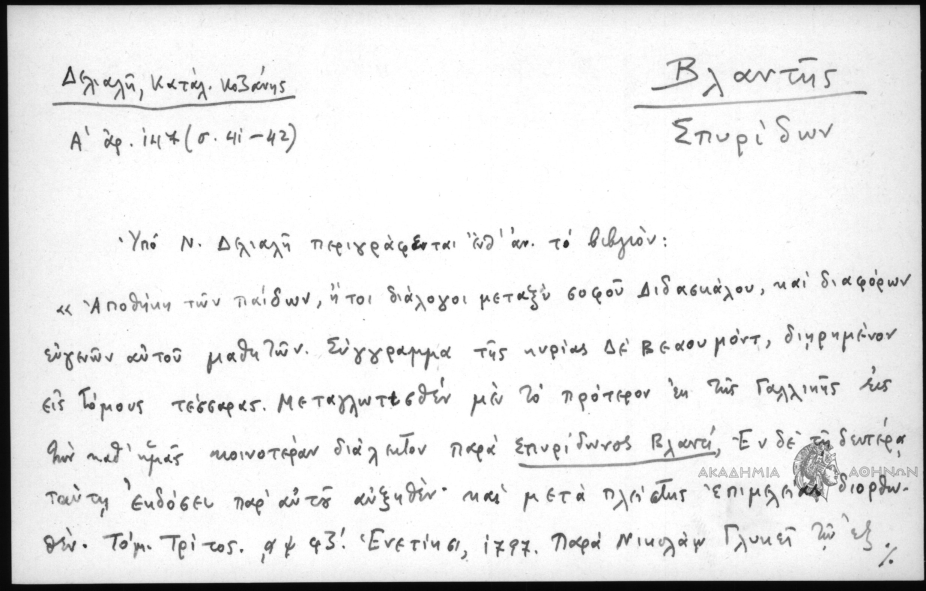 Δελιαλῆ, Κατάλ. Κοζάνης
Βλαντῆς
Α' ἀρ. 147 (σ. 41-42)
Σπυρίδων
Ὑπό Ν. Δελιαλῆ περιγράφεται ἐνθ' ἀν. τό βιβλιόν:
« Ἀποθήκη τῶν παίδων, ἤτοι διάλογοι μεταξύ σοφοῦ Διδασκάλου, καί διαφόρων
εὐγενῶν αὐτοῦ μαθητῶν. Σύγγραμμα τῆς κυρίας Δέ Βεαουμόντ, διῃρημένον
εἰς Τόμους τέσσαρας. Μεταγλωττισθέν μέν τό πρότερον ἐκ τῆς Γαλλικῆς εἰς
τήν καθ' ἡμᾶς κοινοτέραν διάλεκτον παρά Σπυρίδωνος Βλαντῆ, Ἐν δέ τῇ δευτέρᾳ
ταύτῃ ἐκδόσει παρ' αὐτοῦ αὐξηθέν· καί μετά πλείστης ἐπιμελείας διορθω-
θέν. Τόμ. Τρίτος. ͵αψϟζ'. Ἐνετίησι, 1797. Παρά Νικολάῳ Γλυκεῖ τῷ ἐξ
./.
ΑΚΑΔΗΜΙΑ ΑΘΗΝΩΝ